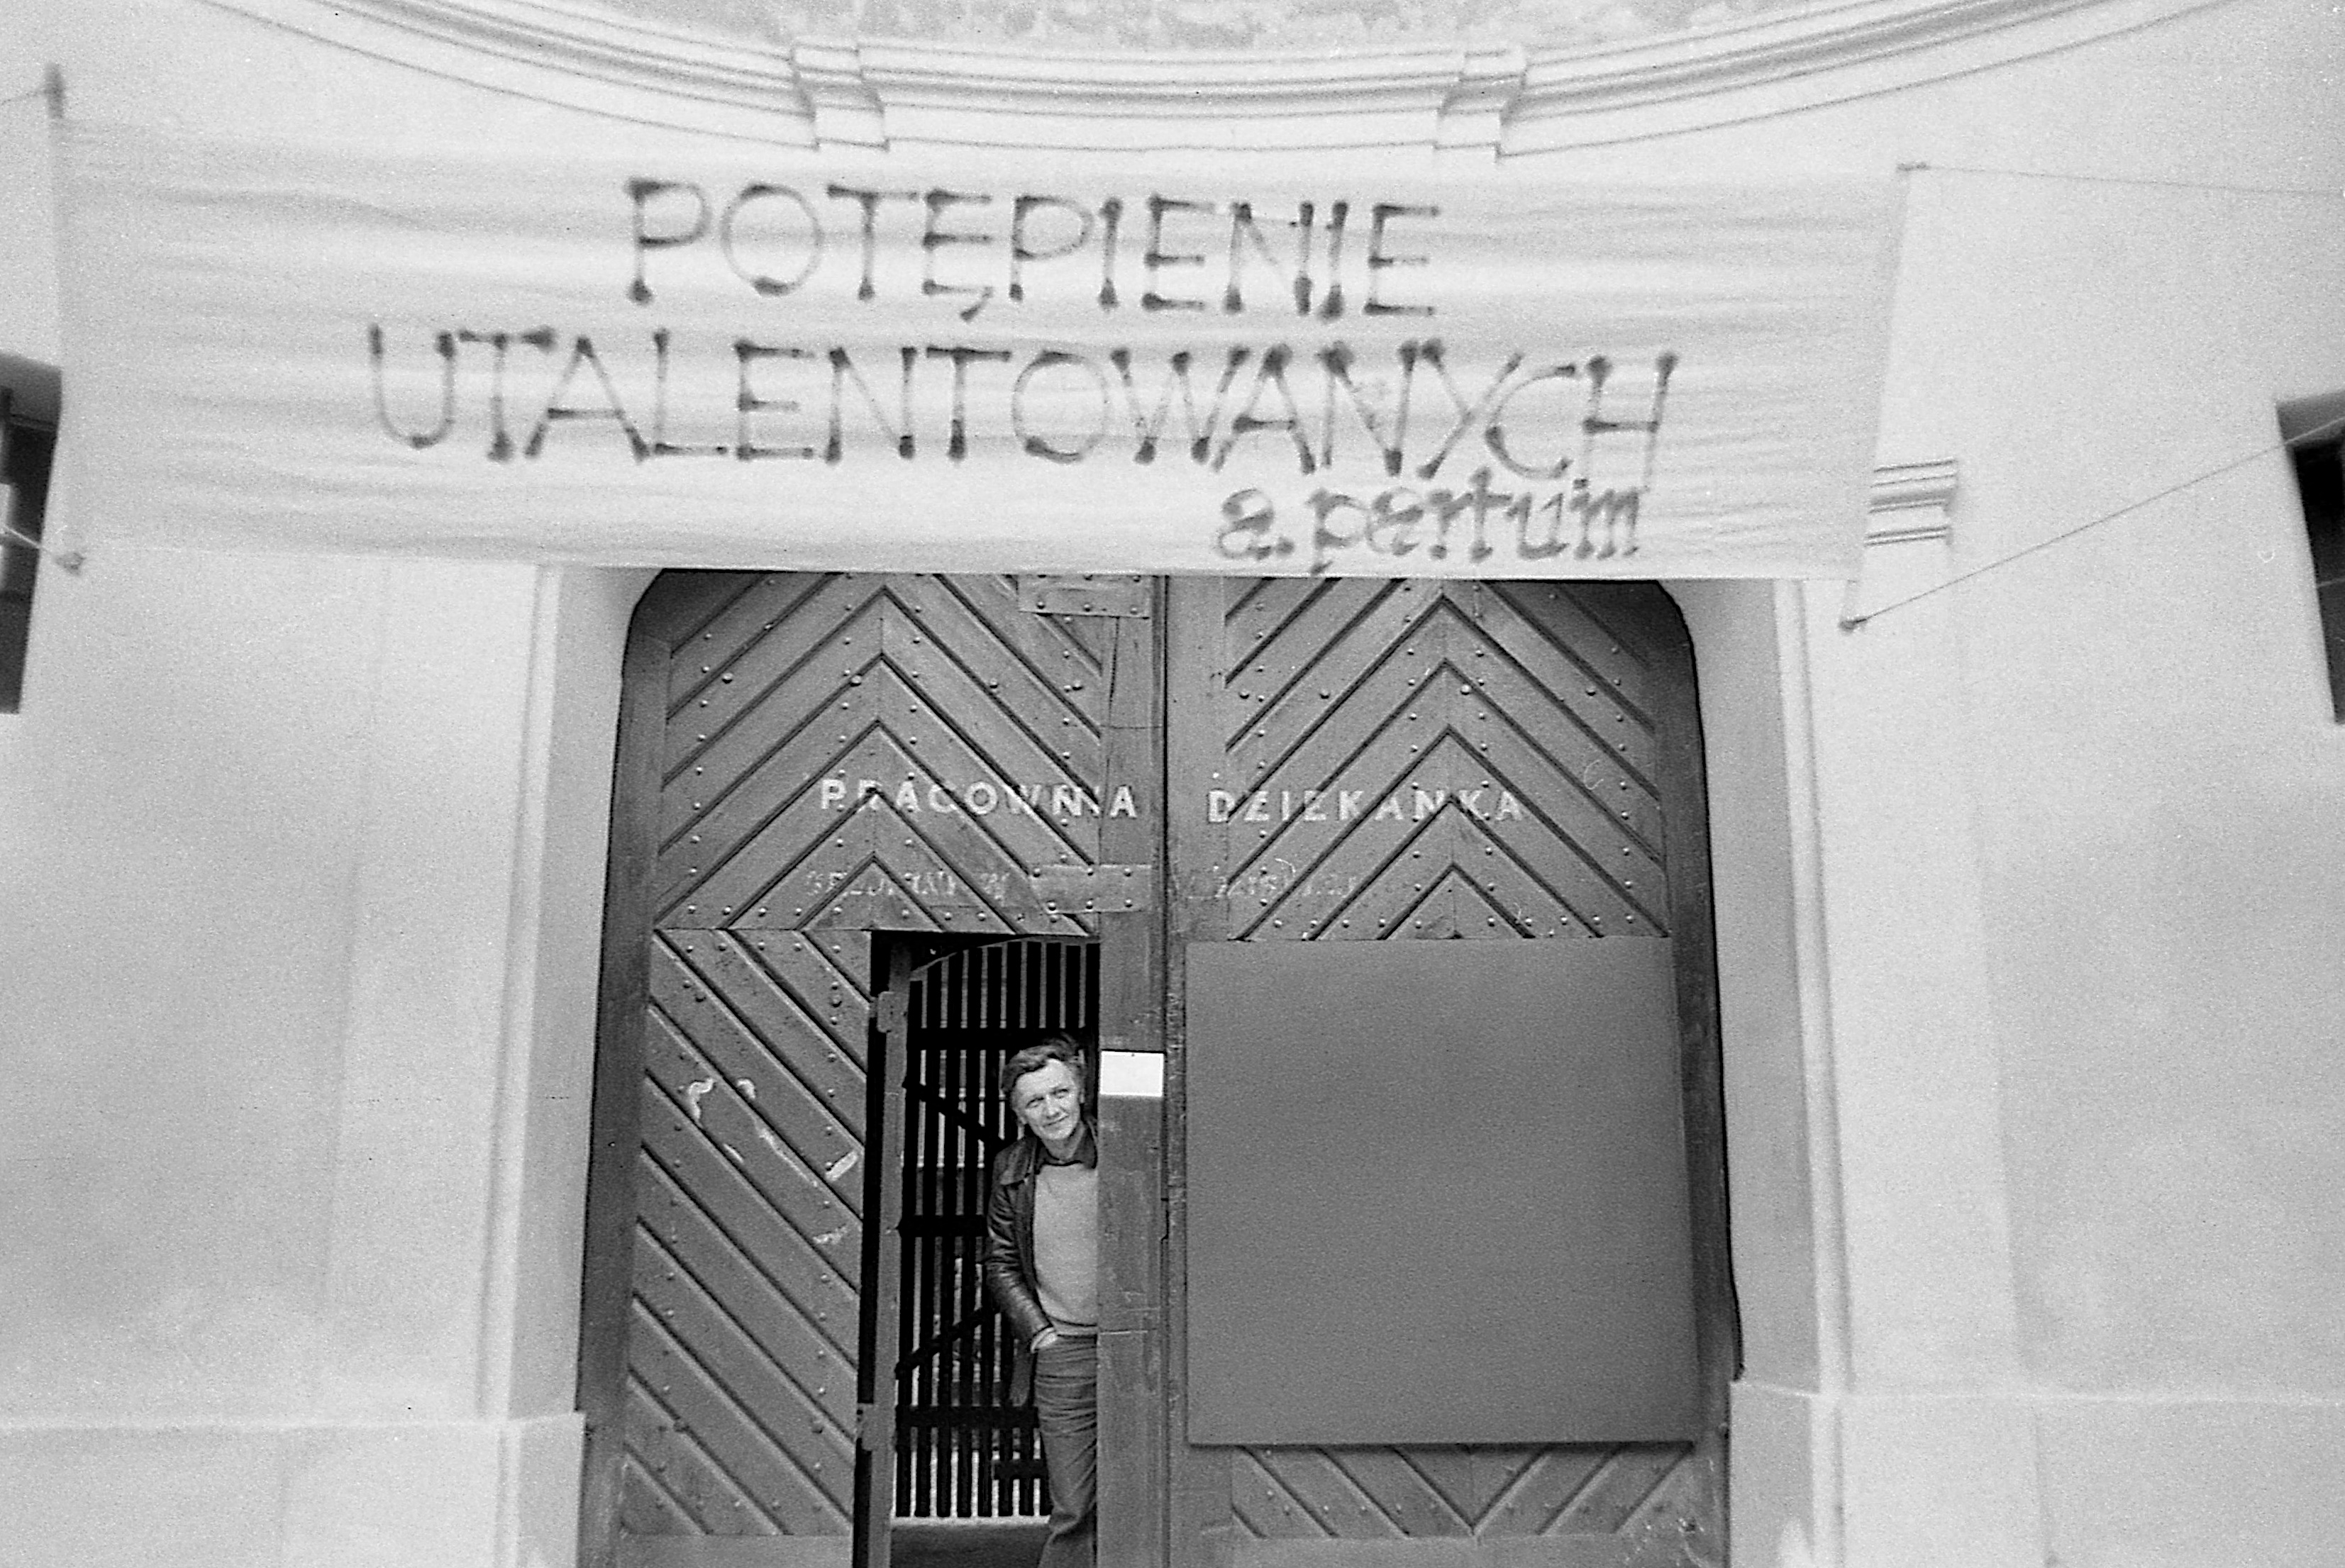 POTĘPIENIE
UTALENTOWANYCH
a.partum
PRACOWNIA DZIEKANKA